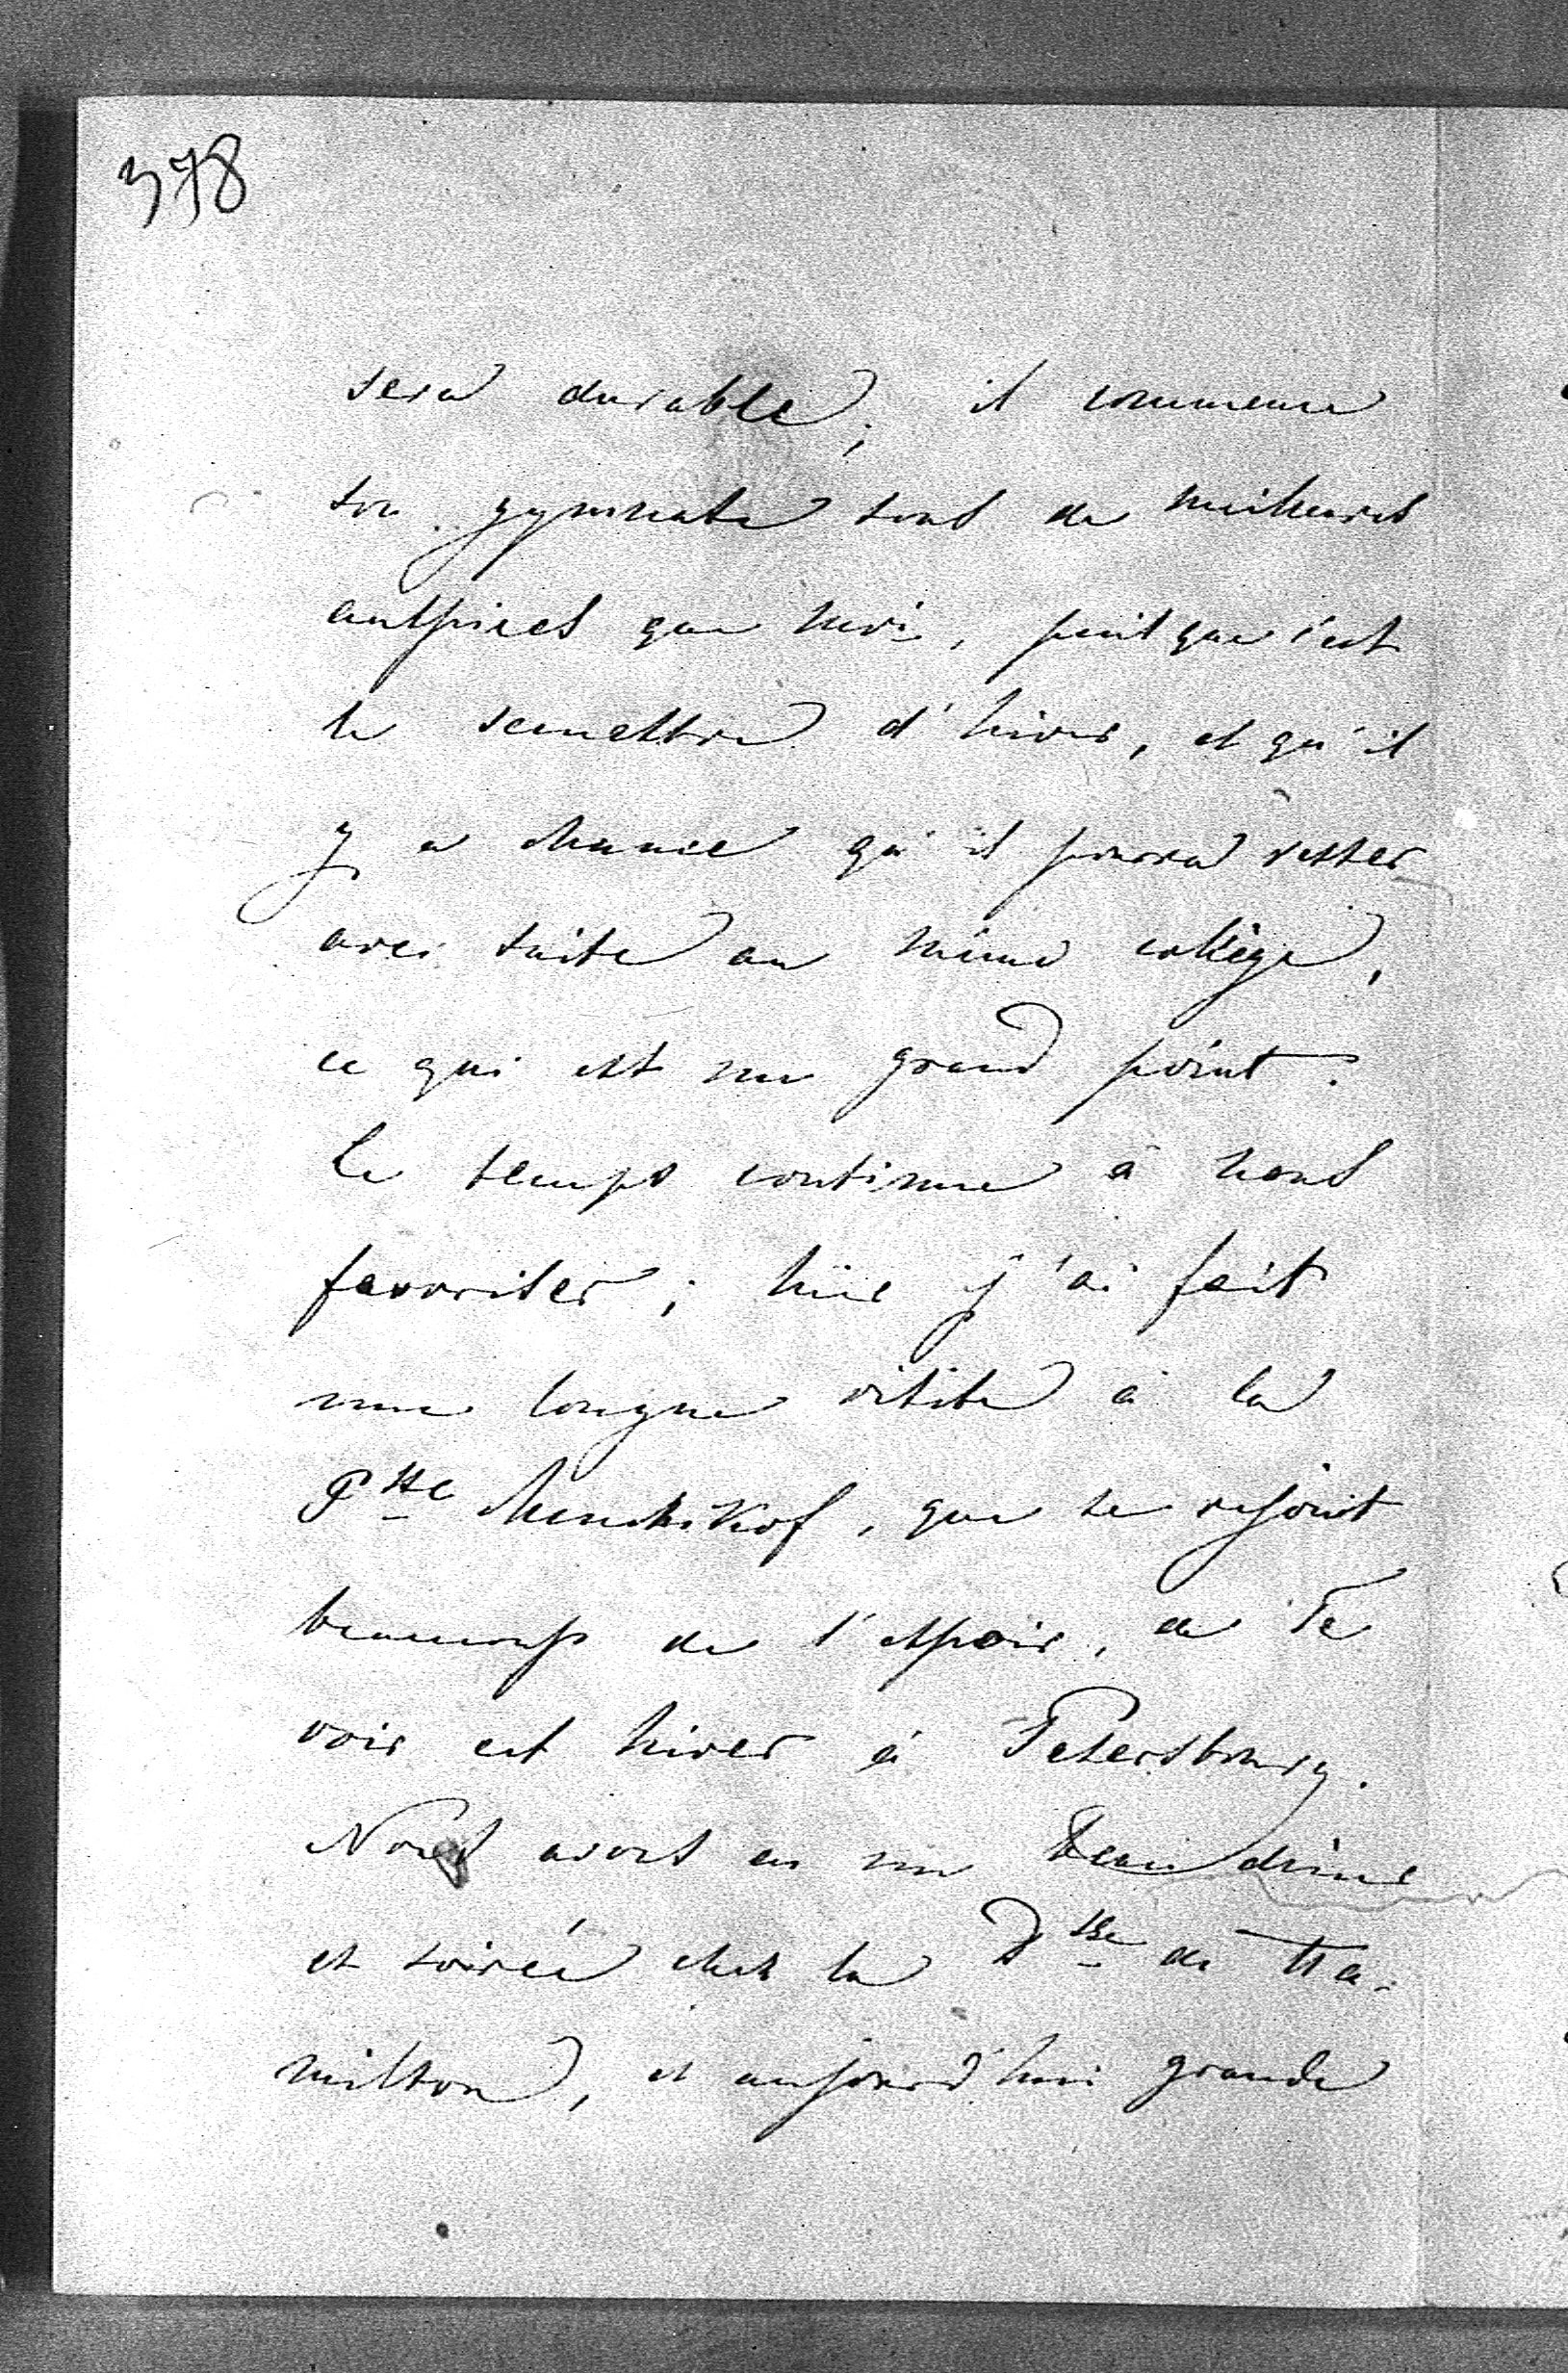 378
sera durable; il commence
son gymnase sous de meilleurs
auspices que moi, puisque c'est
le semestre d'hiver, et qu'il
y a chance qu'il pourra rester
avec suite au même collège,
ce qui est un grand point.
Le temps continue à nous
favoriser; hier j'ai fait
une longue visite à la
Psse Menchikof, que se rejouit
beaucoup de l'espoir, de Te
voir cet hiver à Petersbourg.
Nous avons eu un beau diner
et soirée chez la Dsse de Ha-
milton, et aujourd'hui grande